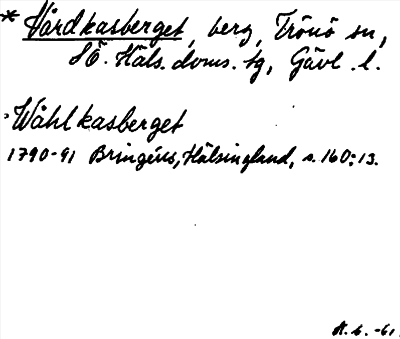 * Vårdkasberget, berg, Trönö sn,
SÖ. Häls. doms. tg, Gävl. l.
Wåhlkasberget
1790-91 Bringéus, Hälsingland, s. 160:13.
H. b. -61.